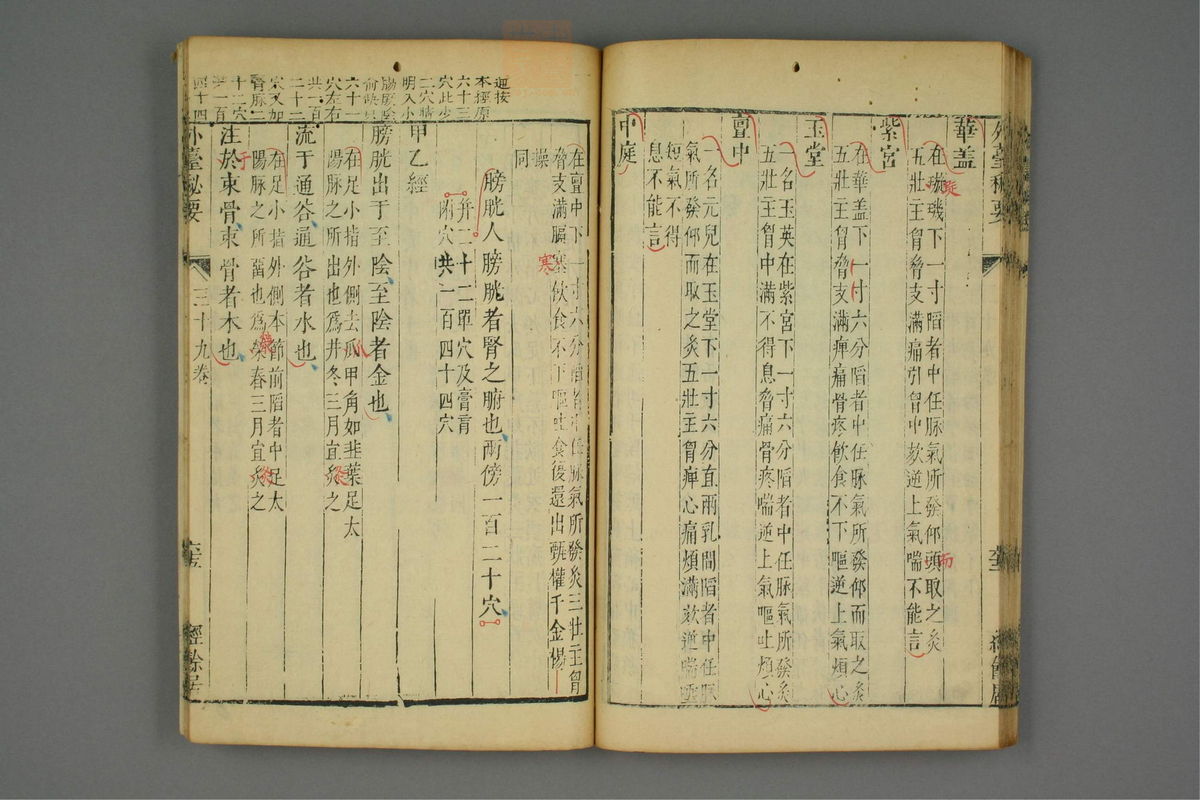 華蓋
在璇璣下一寸陷者中任脉氣所發仰頭取之灸
五壯主胷脅支滿痛引胷中欬逆上氣喘不能言
紫宮
在華蓋下一寸六分陷者中任脉氣所發仰而取之灸
五壯主胷脅支滿痺痛骨疼飲食不下嘔逆上氣煩心
玉堂
一名玉英在紫宮下一寸六分陷者中任脉氣所發灸
五壯主胷中滿不得息脅痛骨疼喘逆上氣嘔吐煩心
亶中
一名元兒在玉堂下一寸六分直兩乳間陷者中任脉
氣所發仰而取之灸五壯主胷痺心痛煩滿欬逆喘
短氣不得
息不能言
中庭
在亶中下一寸六分陷者中任脉氣所發灸三壯主胷
脅支滿膈塞飲食不下嘔吐食後還出甄權千金楊
操
同
膀胱人膀胱者腎之腑也兩傍一百二十穴
并二十二單穴及膏肓
兩穴共一百四十四穴
甲乙經
膀胱出于至陰至陰者金也
在足小指外側去爪甲角如韭葉足太
陽脉之所出也爲井冬三月宜灸之
流于通谷通谷者水也
在足小指外側本節前陷者中足太
陽脉之所留也爲滎春三月宜灸之
注於束骨束骨者木也
外臺秘要
三十九卷
經餘居
迥按
本經原
六十三
穴此少
二穴
明入小
六十一
穴左右
共一百
二十二
穴又加
督脉二
十二穴
共一百
四十四